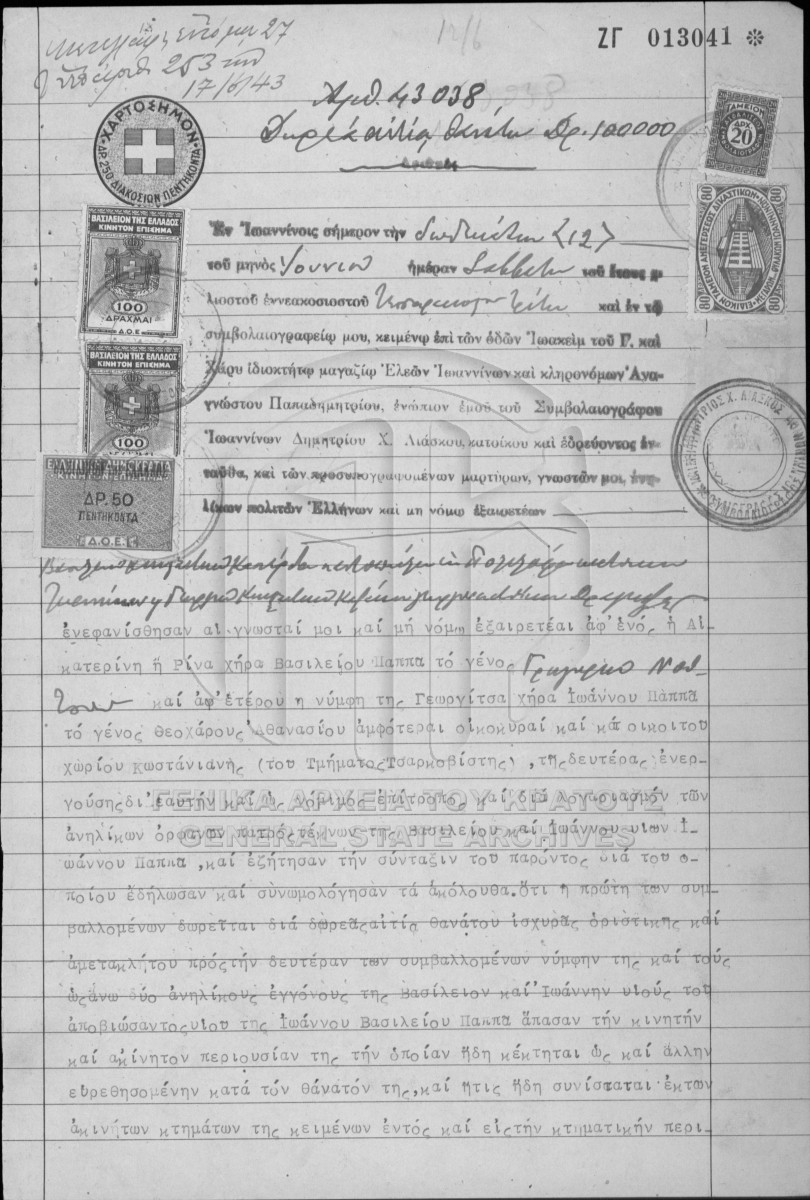 ΖΓ 013041 ※
12/6
253
17/6/43
Αριθ. 43038
Δωρεά αιτία θανάτου Δρ. 100000
ΧΑΡΤΟΣΗΜΟΝ
ΔΡ. 250 ΔΙΑΚΟΣΙΩΝ ΠΕΝΤΗΚΟΝΤΑ
ΤΑΜΕΙΟΝ
ΔΡΧ
20
ΒΑΣΙΛΕΙΟΝ ΤΗΣ ΕΛΛΑΔΟΣ
ΚΙΝΗΤΟΝ ΕΠΙΣΗΜΑ
100
ΔΡΑΧΜΑΙ
Δ.Ο.Ε.
80 80
80 80
ΒΑΣΙΛΕΙΟΝ ΤΗΣ ΕΛΛΑΔΟΣ
ΚΙΝΗΤΟΝ ΕΠΙΣΗΜΑ
100
ΕΛΛΗΝΙΚΗ ΔΗΜΟΚΡΑΤΙΑ
ΔΡ. 50
ΠΕΝΤΗΚΟΝΤΑ
Δ.Ο.Ε.
Ἐν Ἰωαννίνοις σήμερον τὴν δωδεκάτην (12)
τοῦ μηνὸς Ἰουνίου ἡμέραν Σάββατον τοῦ ἔτους χι-
λιοστοῦ ἐννεακοσιοστοῦ τεσσαρακοστοῦ τρίτου καὶ ἐν τῷ
συμβολαιογραφείῳ μου, κειμένῳ ἐπὶ τῶν ὁδῶν Ἰωακεὶμ τοῦ Γ. καὶ
Χάρυ ἰδιοκτήτῳ μαγαζίῳ Ἐλεῶν Ἰωαννίνων καὶ κληρονόμων Ἀνα-
γνώστου Παπαδημητρίου, ἐνώπιον ἐμοῦ τοῦ Συμβολαιογράφου
Ἰωαννίνων Δημητρίου Χ. Λιάσκου, κατοίκου καὶ ἑδρεύοντος ἐν-
ταῦθα, καὶ τῶν προσυπογραφομένων μαρτύρων, γνωστῶν μοι, ἐνη-
λίκων πολιτῶν Ἑλλήνων καὶ μὴ νόμῳ ἐξαιρετέων
ἐνεφανίσθησαν αἱ γνωσταί μοι καί μή νόμῳ ἐξαιρετέαι ἀφ'ἑνός ἡ Αἰ
κατερίνη ἤ Ρίνα χήρα Βασιλείου Παππᾶ τό γένος Γρηγορίου
καί ἀφ'ἑτέρου η νύμφη της Γεωργίτσα χήρα Ἰωάννου Παππᾶ
τό γένος Θεοχάρους Ἀθανασίου ἀμφότεραι οἰκοκυραί καί κάτοικοι του
χωρίου Κωστάνιανής (του Τμήματος Τσαρκοβίστης), τῆς δευτέρας ἐνερ-
γούσης δι'ἑαυτήν καί ὡς νόμιμος ἐπίτροπος καί διά λογαριασμόν τῶν
ἀνηλίκων ὀρφανῶν πατρός τέκνων της Βασιλείου καί Ἰωάννου υἱῶν Ἰ-
ωάννου Παππᾶ, καί ἐζήτησαν τήν σύνταξιν του παρόντος διά του ο-
ποίου ἐδήλωσαν καί συνωμολόγησαν τά ἀκόλουθα. Ὅτι η πρώτη των συμ-
βαλλομένων δωρεῖται διά δωρεᾶς αἰτίᾳ θανάτου ἰσχυρᾶς ὁριστικῆς καί
ἀμετακλήτου πρός τήν δευτέραν των συμβαλλομένων νύμφην της καί τούς
ὡς ἄνω δύο ἀνηλίκους ἐγγόνους της Βασίλειον καί Ἰωάννην υἱούς του
ἀποβιώσαντος υἱου της Ἰωάννου Βασιλείου Παππᾶ ἅπασαν τήν κινητήν
καί ἀκίνητον περιουσίαν της τήν ὁποίαν ἤδη κέκτηται ὡς καί ἄλλην
εὑρεθησομένην κατά τόν θάνατόν της, καί ἥτις ἤδη συνίσταται ἐκ των
ἀκινήτων κτημάτων της κειμένων ἐντός καί εἰς τήν κτηματικήν περι-
ΓΕΝΙΚΑ ΑΡΧΕΙΑ ΤΟΥ ΚΡΑΤΟΥΣ
GENERAL STATE ARCHIVES